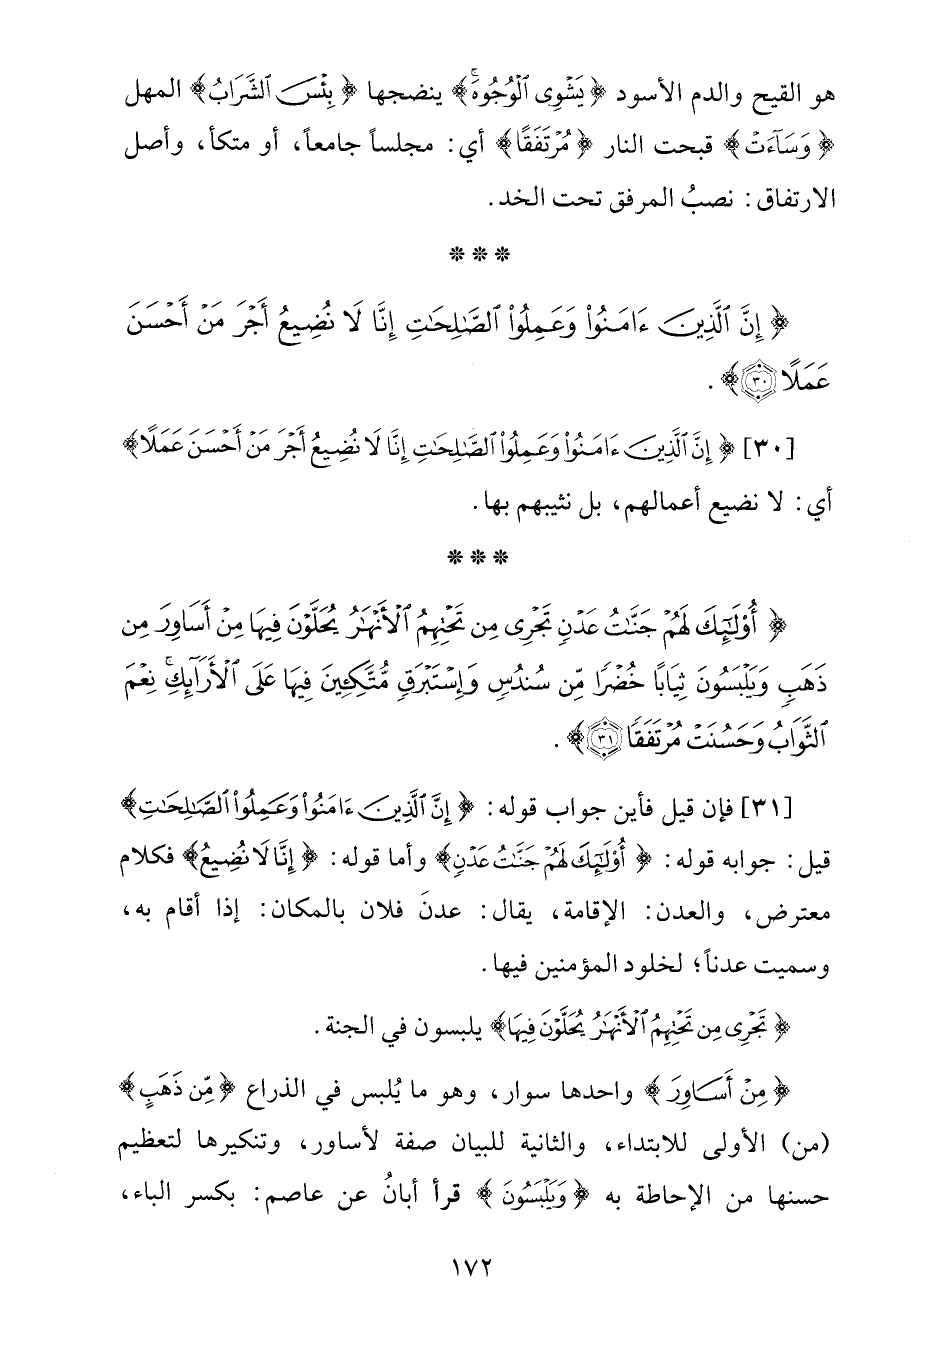 هو القيح والدم الأسود ﴿يَشْوِى ٱلْوُجُوهَۚ﴾ ينضجها ﴿بِئْسَ ٱلشَّرَابُ﴾ المهل
﴿وَسَآءَتْ﴾ قبحت النار ﴿مُرْتَفَقًا﴾ أي: مجلساً جامعاً، أو متكأ، وأصل
الارتفاق: نصبُ المرفق تحت الخد.
***
﴿إِنَّ ٱلَّذِينَ ءَامَنُوا۟ وَعَمِلُوا۟ ٱلصَّٰلِحَٰتِ إِنَّا لَا نُضِيعُ أَجْرَ مَنْ أَحْسَنَ
عَمَلًا ٣٠﴾.
[٣٠] ﴿إِنَّ ٱلَّذِينَ ءَامَنُوا۟ وَعَمِلُوا۟ ٱلصَّٰلِحَٰتِ إِنَّا لَا نُضِيعُ أَجْرَ مَنْ أَحْسَنَ عَمَلًا﴾
أي: لا نضيع أعمالهم، بل نثيبهم بها.
***
﴿أُو۟لَٰٓئِكَ لَهُمْ جَنَّٰتُ عَدْنٍ تَجْرِى مِن تَحْتِهِمُ ٱلْأَنْهَٰرُ يُحَلَّوْنَ فِيهَا مِنْ أَسَاوِرَ مِن
ذَهَبٍ وَيَلْبَسُونَ ثِيَابًا خُضْرًا مِّن سُندُسٍ وَإِسْتَبْرَقٍ مُّتَّكِـِٔينَ فِيهَا عَلَى ٱلْأَرَآئِكِۚ نِعْمَ
ٱلثَّوَابُ وَحَسُنَتْ مُرْتَفَقًا ٣١﴾.
[٣١] فإن قيل فأين جواب قوله: ﴿إِنَّ ٱلَّذِينَ ءَامَنُوا۟ وَعَمِلُوا۟ ٱلصَّٰلِحَٰتِ﴾
قيل: جوابه قوله: ﴿أُو۟لَٰٓئِكَ لَهُمْ جَنَّٰتُ عَدْنٍ﴾ وأما قوله: ﴿إِنَّا لَا نُضِيعُ﴾ فكلام
معترض، والعدن: الإقامة، يقال: عدنَ فلان بالمكان: إذا أقام به،
وسميت عدناً؛ لخلود المؤمنين فيها.
﴿تَجْرِى مِن تَحْتِهِمُ ٱلْأَنْهَٰرُ يُحَلَّوْنَ فِيهَا﴾ يلبسون في الجنة.
﴿مِنْ أَسَاوِرَ﴾ واحدها سوار، وهو ما يُلبس في الذراع ﴿مِّن ذَهَبٍ﴾
(من) الأولى للابتداء، والثانية للبيان صفة لأساور، وتنكيرها لتعظيم
حسنها من الإحاطة به ﴿وَيَلْبَسُونَ﴾ قرأ أبانُ عن عاصم: بكسر الباء،
١٧٢